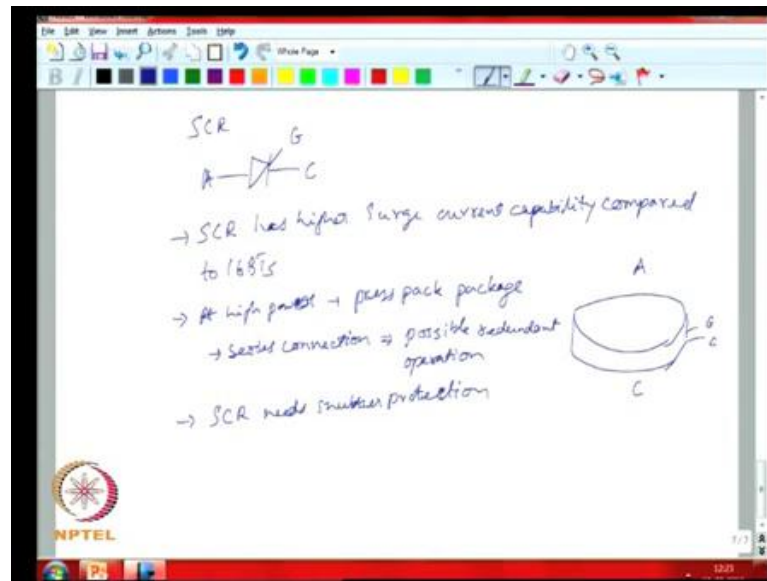 File Edit View Insert Actions Tools Help
Whole Page
SCR
G
A
C
→ SCR has higher surge current capability compared
to IGBTs
→ At high power → press pack package
→ series connection ⇒ possible redundant
operation
→ SCR needs snubber protection
A
G
C
C
NPTEL
7/7
12:23